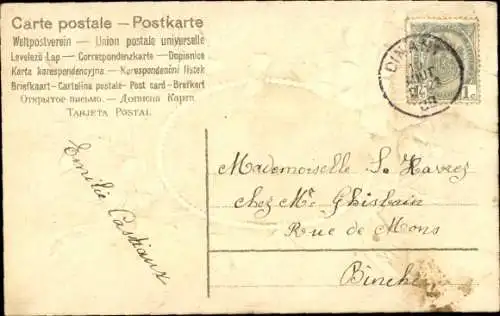 Carte postale — Postkarte
Weltpostverein — Union postale universelle
Levelező-Lap — Correspondenzkarte — Dopisnice
Karta korespondencyjna — Korespondenční lístek
Briefkaart — Cartolina postale — Post card — Brefkort
Открытое письмо. — Дописна Карта
Tarjeta Postal
DINANT
AOUT
1c
Emilie Castiaux
Mademoiselle S. Havrez
chez Mr Ghislain
Rue de Mons
Binche